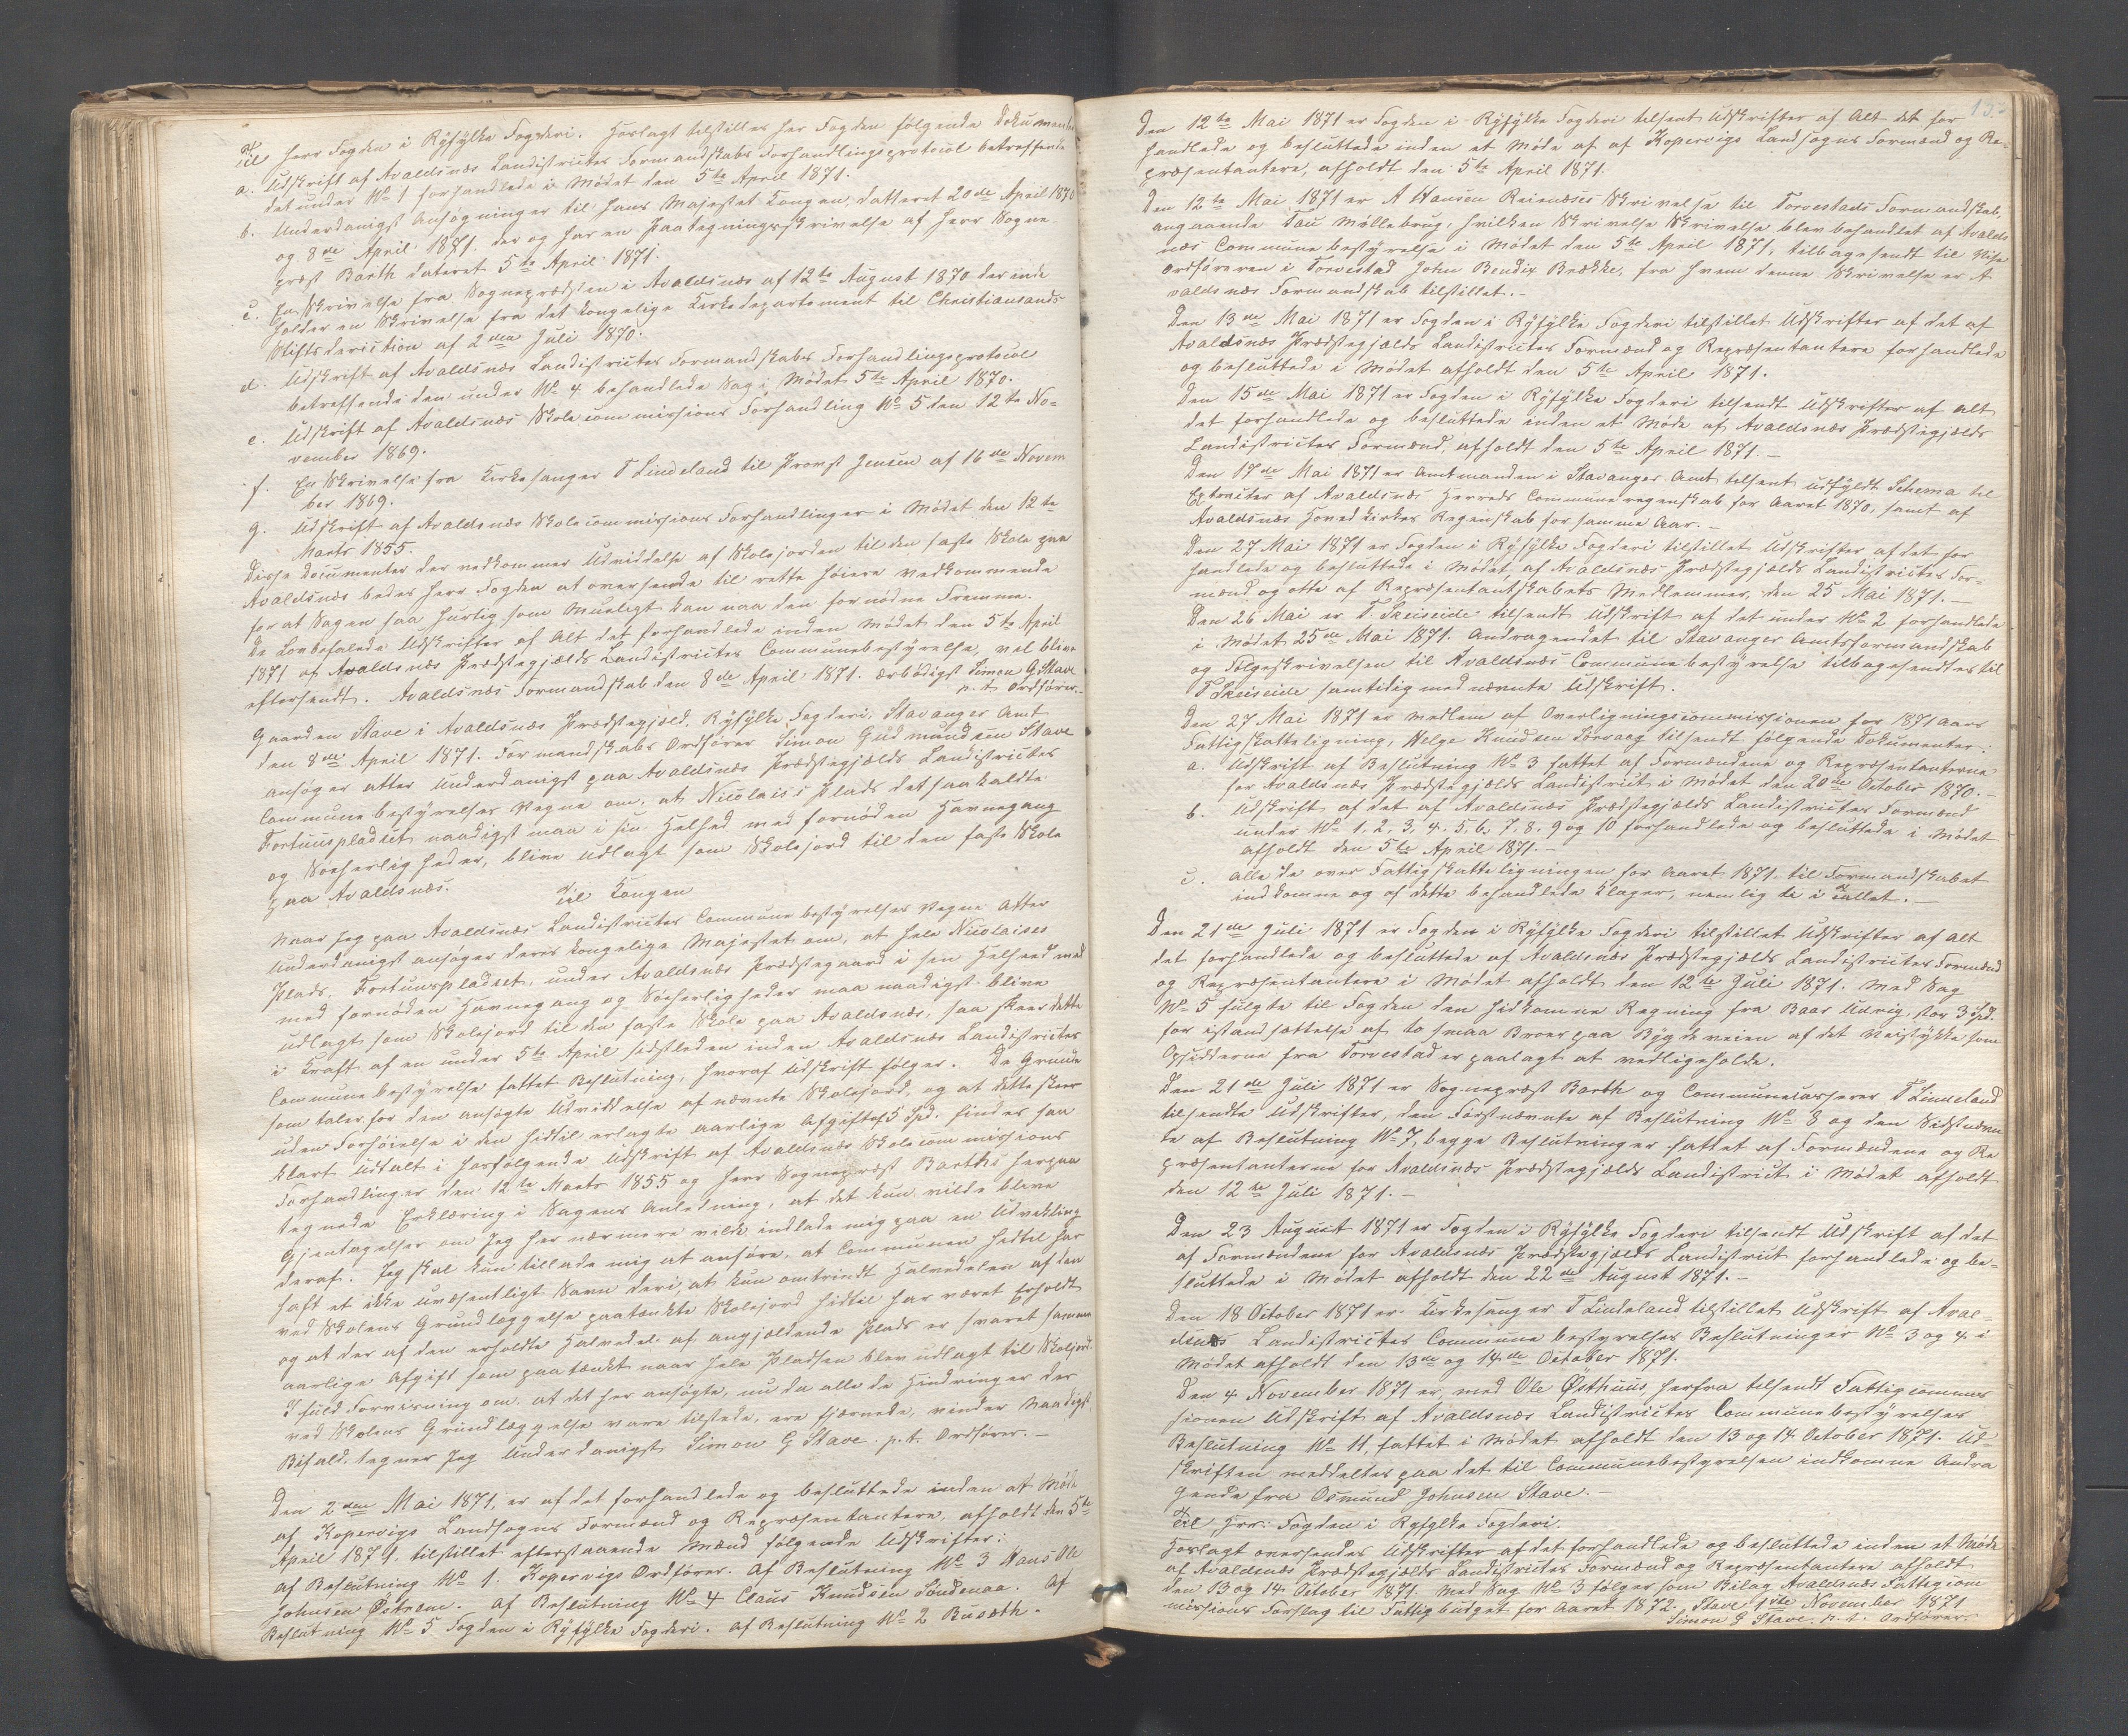 Til Herr Fogden i Ryfylke Fogderi. Hoslagt tilstilles Hr Fogden følgende Dokumenter
a. Udskrift af Avaldsnæs Landdistricts Formandskabs Forhandlingsprotocol betreffende
det under No 1 forhandlede i Mødet den 5te April 1871.
b. Underdanigst Ansøgninger til Hans Majestæt Kongen, datteret 20de April 1870
og 8de April 1871. der og har en Paategningsskrivelse af Herr Sogne-
præst Barth dateret 5te April 1871.
c. En Skrivelse fra Sognepræsten i Avaldsnæs af 12te August 1870 der inde
holder en Skrivelse fra det kongelige Kirkedepartement til Christiansands
Stiftsderiction af 2den Juli 1870.
d. Udskrift af Avaldsnæs Landdistrictes Formandskabs Forhandlingsprotocol
betreffende den under No 4 behandlede Sag i Mødet 5te April 1870.
e. Udskrift af Avaldsnæs Skolecommissions Forhandling No 5 den 12te No-
vember 1869.
f. En Skrivelse fra Kirkesanger T Lindeland til Provst Jensen af 16de Novem
ber 1869.
g. Udskrift af Avaldsnæs Skolecommissions Forhandlinger i Mødet den 12te
Marts 1855.
Disse Documenter der vedkommer Udviddelse af Skolejorden til den faste Skole paa
Avaldsnæs bedes Herr Fogden at oversende til rette høiere Vedkommende
for at Sagen saa hurtig som mueligt kan naa den fornødne Fremme.
De Lovbefalede Udskrifter af Alt det forhandlede inden Mødet den 5te April
1871 af Avaldsnæs Prædstegjælds Landdistrictes Communebestyrelse, vel blive
eftersendt. Avaldsnæs Formandskab den 8de April 1871. ærbødigst Simon G Stave
p. t. Ordfører.
Gaarden Stave i Avaldsnæs Prædstegjæld, Ryfylke Fogderi, Stavanger Amt
den 8de April 1871. Formandskabs Ordfører Simon Gudmundsen Stave
ansøger atter underdanigst paa Avaldsnæs Prædstegjælds Landdistrictes
Communebestyrelses Vegne om, at Nicolaises Plads det saakaldte
Fortuunspladset naadigst maa i sin Helhed med fornøden Havnegang
og Nøeherligheder, blive udlagt som Skolejord til den faste Skole
paa Avaldsnæs.
Til Kongen
Naar jeg paa Avaldsnæs Landdistrictes Communebestyrelses Vegne Atter
underdanigst ansøger deres kongelige Majestæt om, at hele Nicolaises
Plads. Fortuunspladset, under Avaldsnæs Prædstegaard i sin Helhed med
med fornøden Havnegang og Nøeherligheder maa naadigst blive
udlagt som Skolejord til den faste Skole paa Avaldsnæs, saa skeer dette
i Kraft af en under 5te April sidstleden inden Avaldsnæs Landdistrictes
Communebestyrelse fattet Beslutning, hvoraf Udskrift følger. De Grunde
som taler for den ansøgte Udviddelse af nævnte Skolejord, og at dette skeer
uden Forhøielse i den hidtil erlagte aarlige Afgift af 5 Spd. findes saa
klart udtalt i hosfølgende Udskrift af Avaldsnæs Skolecommissions
Forhandlinger den 12te Marts 1855 og Herr Sognepræst Barths herpaa
tegnede Erklæring i Sagens Anledning, at det kun vilde blive
Gjentagelser om Jeg her nærmere vilde indlade mig paa en Udvekling
deraf. Jeg skal kun tillade mig at anføre, at Communen hidtil har
haft et ikke uvæsentligt Savn deri, at kun omtrindt Halvedelen af den
ved Skolens Grundlæggelse paatænkte Skolejord hidtil har været Erholdt
og at der af den erholdte Halvedel af angjældende Plads er svaret samme
aarlige Afgift som paatænkt naar hele Pladsen blev udlagt til Skolejord.
I fuld Forvisning om, at det her ansøgte, nu da alle de Hindringer der
ved Skolens Grundlæggelse vare tilstede, ere fjærnede, vinder Naadigst
Bifald. tegner Jeg Underdanigst Simon G Stave. p. t. Ordfører.—
Den 2den Mai 1871, er af det forhandlede og besluttede inden et Møde
af Kopervigs Landsogns Formænd og Repræsentantere, afholdt den 5te
April 1871, tilstillet efterstaaende Mænd følgende Udskrifter:
af Beslutning No 1. Kopervigs Ordfører. Af Beslutning No 3 Hans Ole
Johnsen Østrem. Af Beslutning No 4 Claus Knudsen Søndenaa. Af
Beslutning No 5 Fogden i Ryfylke Fogderi. Af Beslutning No 2 Busæth.
Den 12te Mai 1871 er Fogden i Ryfylke Fogderi tilsent Udskrifter af Alt det for
handlede og besluttede inden et Møde af af Kopervigs Landsogns Formænd og Re-
præsentantere, afholdt den 5te April 1871.
Den 12te Mai 1871 er A Hansen Reienæses Skrivelse til Torvestads Formandskab,
angaaende Tau Møllebrug, hvilken Skrivelse Skrivelse blev behandlet af Avalds
næs Communebestyrelse i Mødet den 5te April 1871, tilbagesendt til Vise
ordføreren i Torvestad John Bendix Brække, fra hvem denne Skrivelse er A
valdsnæs Formandskab tilstillet.—
Den 13de Mai 1871 er Fogden i Ryfylke Fogderi tilstillet Udskrifter af det af
Avaldsnæs Prædstegjælds Landdistrictes Formænd og Repræsentantere forhandlede
og besluttede i Mødet afholdt den 5te April 1871.
Den 15de Mai 1871 er Fogden i Ryfylke Fogderi tilsendt Udskrifter af alt
det forhandlede og besluttede inden et Møde af Avaldsnæs Prædstegjælds
Landdistrictes Formænd, afholdt den 5te April 1871.—
Den 17de Mai 1871 er Amtmanden i Stavanger Amt tilsent udfyldt Schema til
Extracter af Avaldsnæs Herreds Communeregenskab for Aaret 1870, samt af
Avaldsnæs Hovedkirkes Regenskab for samme Aar.—
Den 27 Mai 1871 er Fogden i Ryfylke Fogderi tilstillet Udskrifter af det for
handlede og besluttede i Mødet, af Avaldsnæs Prædstegjælds Landdistrictes For-
mænd og otte af Repræsentantskabets Medlemmer, den 25 Mai 1871.—
Den 26 Mai er T. Skeiseide tilsendt Udskrift af det under No 2 forhandlede
i Mødet 25de Mai 1871. Andragendet til Stavanger Amtsformandskab
og Følgeskrivelsen til Avaldsnæs Communebestyrelse tilbagesendtes til
T Skeiseide samtidig med nævnte Udskrift.
Den 27 Mai 1871 er Medlem af Overligningscommissionen for 1871 Aars
Fattigskatteligning, Helge Knudsen Sørvaag tilsendt følgende Dokumenter:
a. Udskrift af Beslutning No 3 fattet af Formændene og Repræsentanterne
for Avaldsnæs Prædstegjælds Landdistrict i Mødet den 20de October 1870.—
b. Udskrift af det af Avaldsnæs Prædstegjælds Landdistrictes Formænd
under No 1, 2, 3, 4. 5. 6. 7. 8. 9 og 10 forhandlede og besluttede i Mødet
afholdt den 5te April 1871.—
c. Alle de over Fattigskatteligningen for Aaret 1871 til Formandskabet
indkomne og af dette behandlede Klager, nemlig de i Tallet.—
Den 21de Juli 1871 er Fogden i Ryfylke Fogderi tilstillet Udskrifter af Alt
det forhandlede og besluttede af Avaldsnæs Prædstegjælds Landdistrictes Formænd
og Repræsentantere i Mødet afholdt den 12te Juli 1871. Med Sag
No 5 fulgte til Fogden den hidkomne Regning fra Baar Udvig, stor 3 Spd.
for istandsættelse af to smaa Broer paa Bygdeveien af det Veistykke som
Opsidderne fra Torvestad er paalagt at vedligeholde.
Den 21de Juli 1871 er Sognepræst Barth og Communecasserer T Linneland
tilsendte Udskrifter, den Førstnævnte af Beslutning No 8 og den Sidstnævn
te af Beslutning No 7, begge Beslutninger fattet af Formændene og Re
præsentanterne for Avaldsnæs Prædstegjælds Landdistrict i Mødet afholdt
den 12te Juli 1871.—
Den 23 August 1871 er Fogden i Ryfylke Fogderi tilsendt Udskrift af det
af Formændene for Avaldsnæs Prædstegjælds Landdistrict forhandlede og be-
sluttede i Mødet afholdt den 22de August 1871.—
Den 18 October 1871 er Kirkesanger T Lindeland tilstillet Udskrift af Aval-
dsnæs Landdistrictes Communebestyrelses Beslutninger No 3 og 4 i
Mødet afholdt den 13de og 14de October 1871.
Den 4 November 1871 er, med Ole Østhuus, herfra tilsendt Fattigcommis
sionen Udskrift af Avaldsnæs Landdistrictes Communebestyrelses
Beslutning No 11, fattet i Mødet afholdt den 13 og 14 October 1871. Ud-
skriften meddeltes paa det til Communebestyrelsen indkomne Andra
gende fra Osmund Johnsen Stave.—
Til Hrr: Fogden i Ryfylke Fogderi.
Hoslagt oversendes Udskrifter af det forhandlede og besluttede inden et Møde
af Avaldsnæs Prædstegjælds Landdistrictes Formænd og Repræsentantere afholdt
den 13 og 14 October 1871. Med Sag No 3 følger som Bilag Avaldsnæs Fattigcom
missions Forslag til Fattigbudget for Aaret 1872. Stave 1ste November 1871
Simon G Stave. p. t. Ordfører.